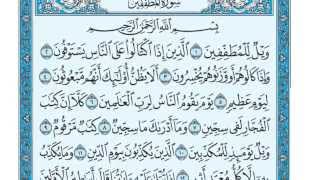 سورة المطففين
بسم الله الرحمن الرحيم
وَيْلٌ لِّلْمُطَفِّفِينَ ١ الَّذِينَ إِذَا اكْتَالُوا عَلَى النَّاسِ يَسْتَوْفُونَ ٢
وَإِذَا كَالُوهُمْ أَو وَّزَنُوهُمْ يُخْسِرُونَ ٣ أَلَا يَظُنُّ أُولَٰئِكَ أَنَّهُم مَّبْعُوثُونَ ٤
لِيَوْمٍ عَظِيمٍ ٥ يَوْمَ يَقُومُ النَّاسُ لِرَبِّ الْعَالَمِينَ ٦ كَلَّا إِنَّ كِتَابَ
الْفُجَّارِ لَفِي سِجِّينٍ ٧ وَمَا أَدْرَاكَ مَا سِجِّينٌ ٨ كِتَابٌ مَّرْقُومٌ ٩
وَيْلٌ يَوْمَئِذٍ لِّلْمُكَذِّبِينَ ١٠ الَّذِينَ يُكَذِّبُونَ بِيَوْمِ الدِّينِ ١١ وَمَا يُكَذِّبُ